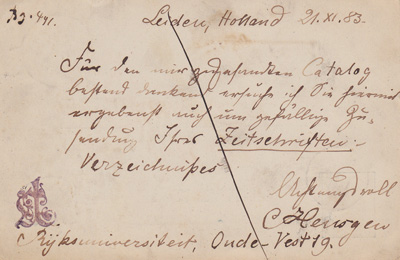 Leiden, Holland 21.XI.83.
Für den mir zugesandten Catalog
bestens dankend ersuche ich Sie hiermit
ergebenst auch um gefällige Zu-
sendung Ihres Zeitschriften-
Verzeichnißes
Achtungsvoll
Rijksuniversiteit, Oude-Vest 19.